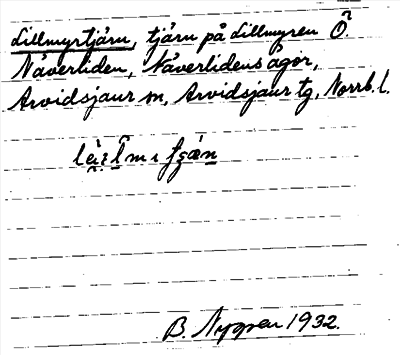 Lillmyrtjärn, tjärn på Lillmyren Ö
Näverliden, Näverlidens ägor,
Arvidsjaur sn, Arvidsjaur tg, Norrb. l.
B. Nygren 1932.